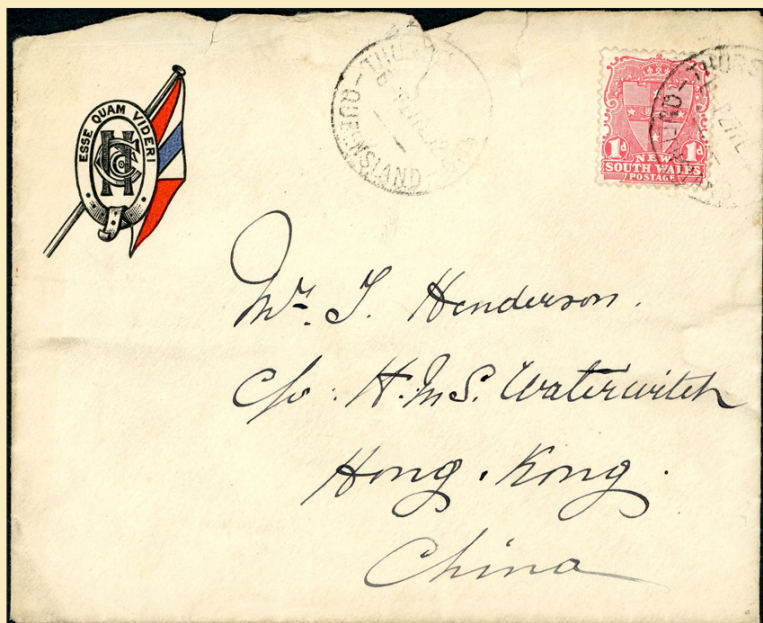 ESSE QUAM VIDERI
QUEENSLAND
1d 1d
NEW
SOUTH WALES
POSTAGE
Mr. J. Henderson.
c/o : H.M.S. Waterwitch
Hong . Kong .
China